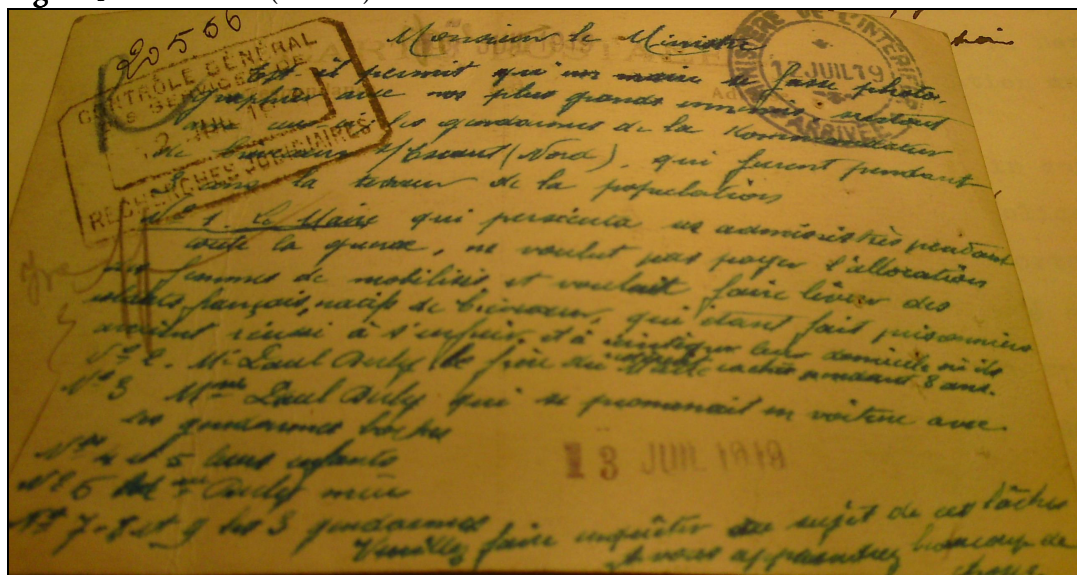 20566
Monsieur le Ministre
CONTRÔLE GÉNÉRAL
DES SERVICES DE
RECHERCHES JUDICIAIRES
MINISTERE DE L'INTERIEUR
12 JUIL 19
ARRIVÉE
Est-il permit qu'un maire se fasse photo-
graphier avec nos plus grands ennemis, restant
les gendarmes de la Kommandantur
de s/Escaut (Nord), qui furent pendant
la terreur de la population
N° 1. Le Maire qui persécuta ses administrés pendant
toute la guerre, ne voulut pas payer l'allocation
aux femmes de mobilisés, et voulait faire livrer des
soldats français, natifs de qui étant fait prisonniers
avaient réussi à s'enfuir, et à leur domicile où ils
N° 2. Mr Paul le frère du cachés pendant 8 ans.
N° 3 Mme Paul qui se promenait en voiture avec
les gendarmes boches
Nos 4 et 5 leurs enfants
N° 6 mère
Nos 7-8 et 9 les 3 gendarmes
13 JUIL 1919
Veuillez faire enquêter au sujet de ces lâches
et vous apprendrez beaucoup de
choses.